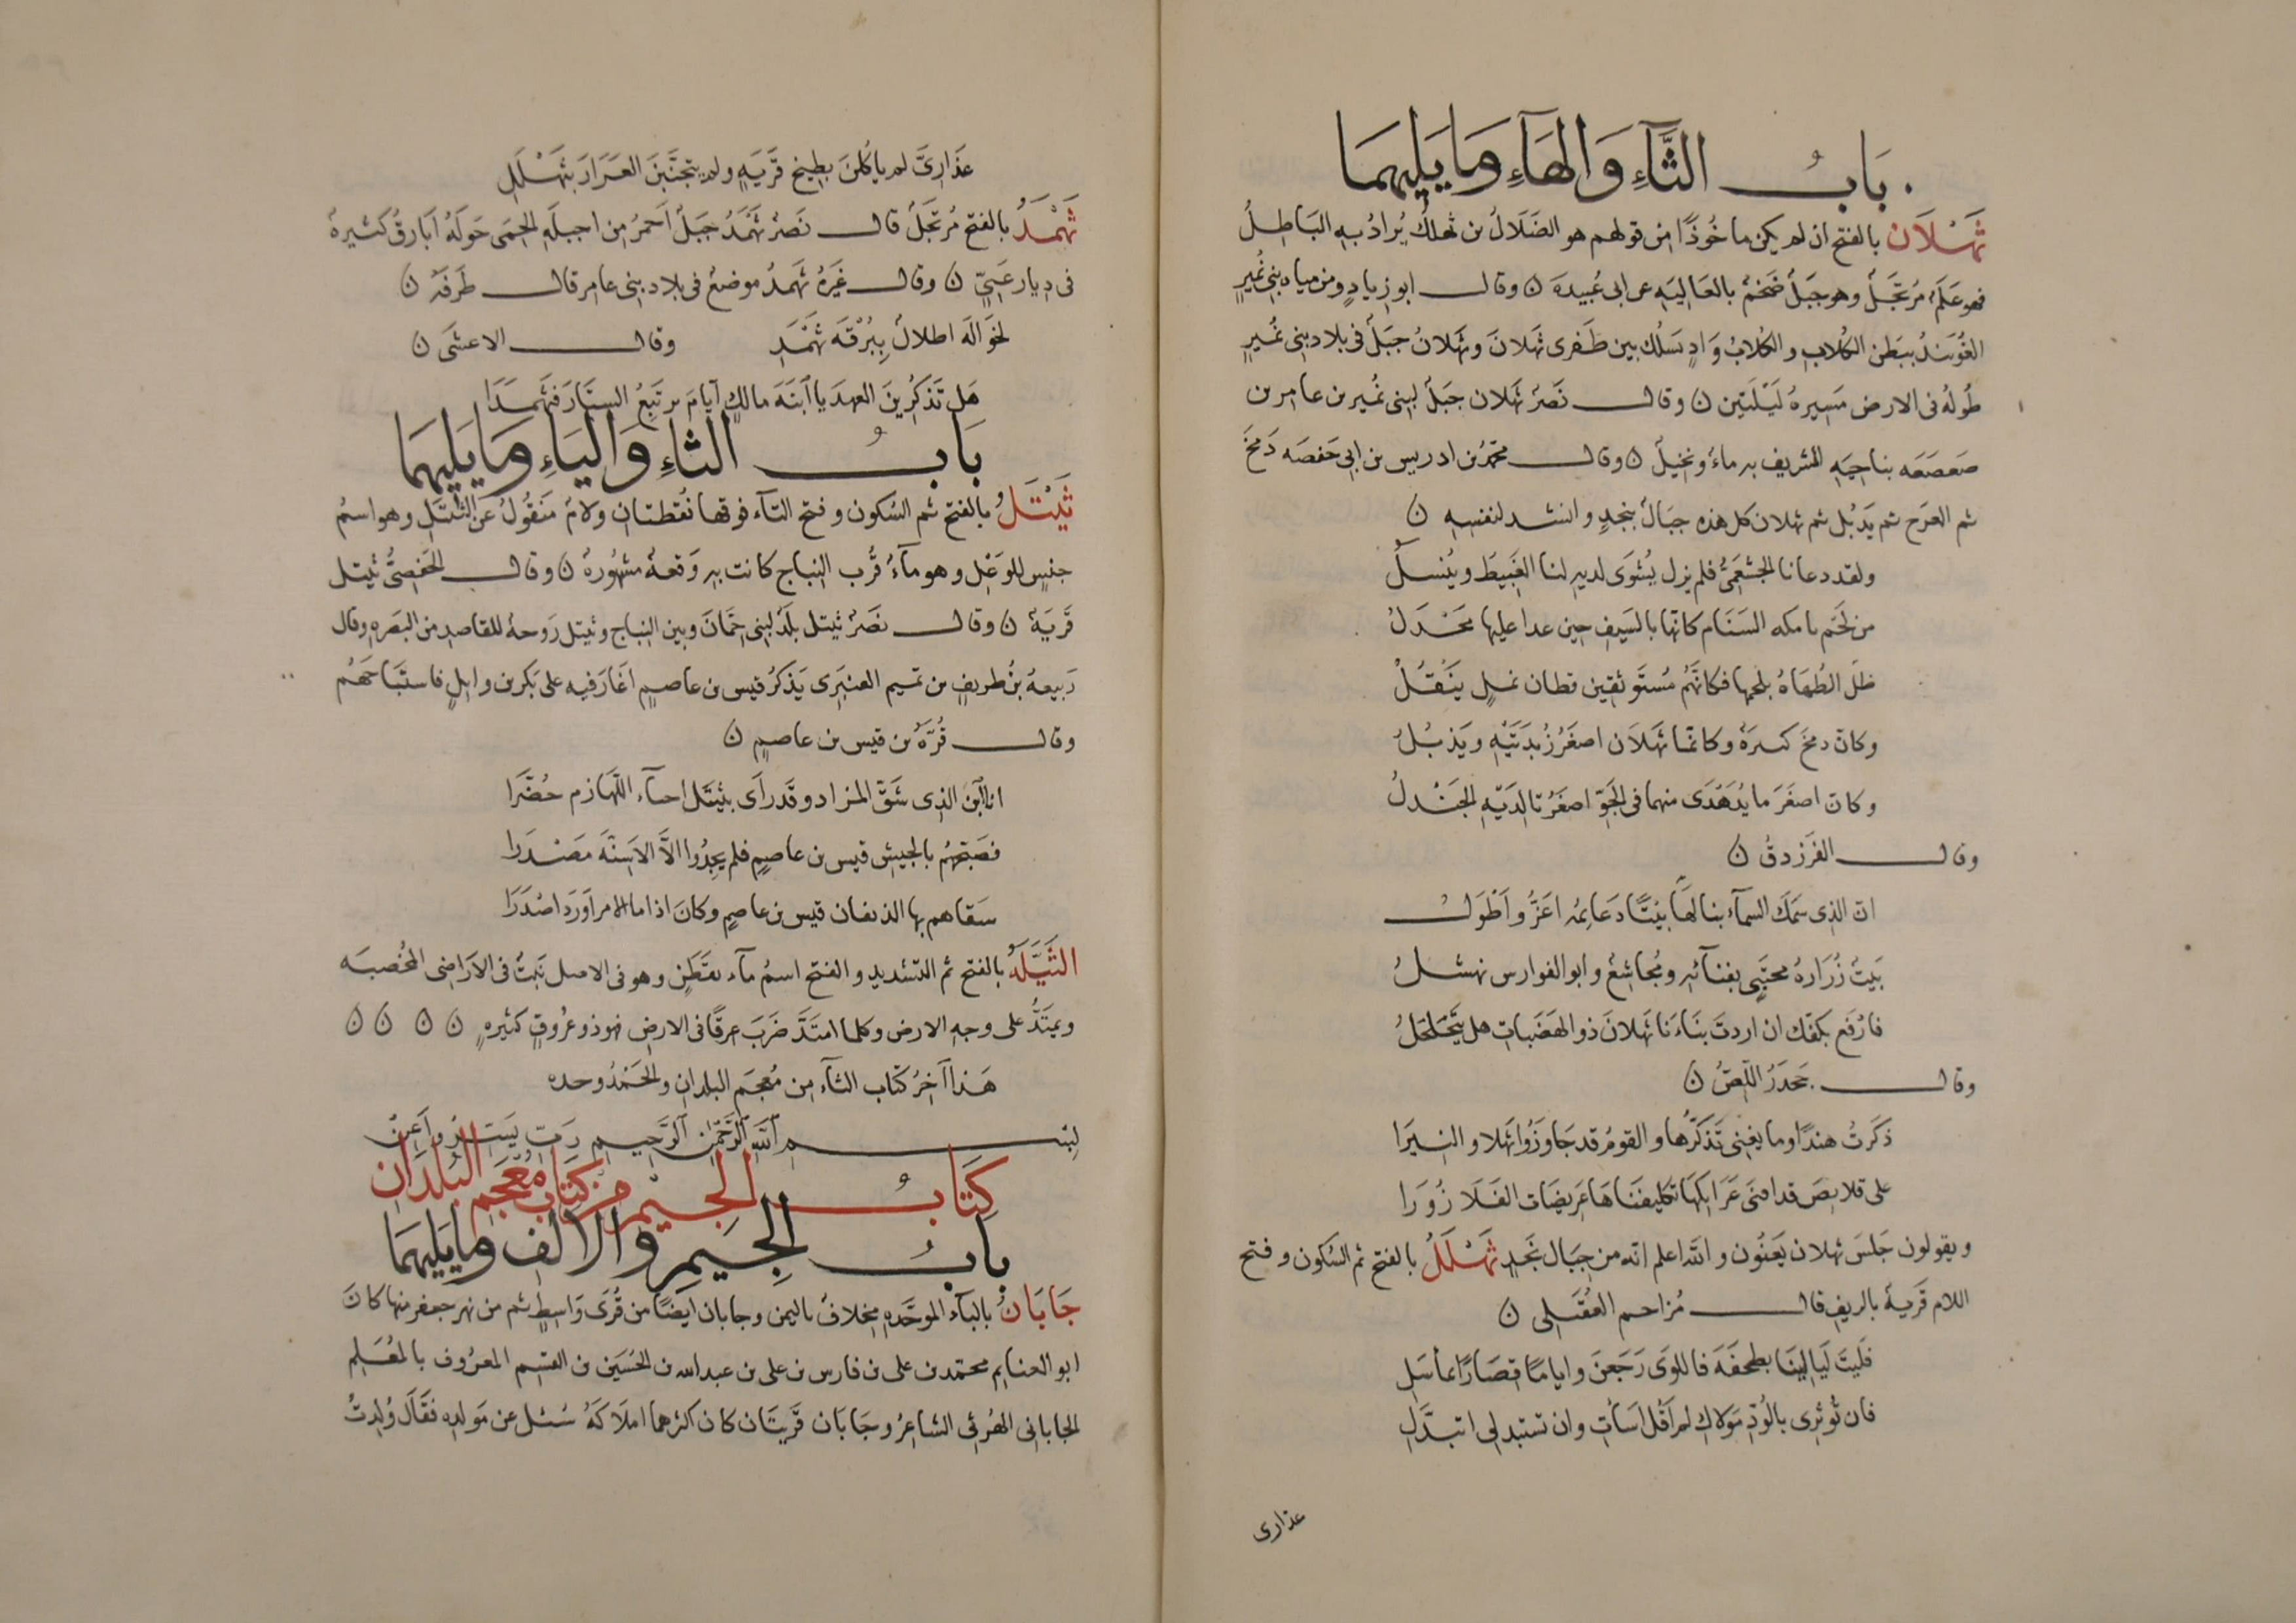 بَابُ الثَّاءِ وَالهَاءِ وَمَا يَلِيهِمَا
ثَهْلَان بالفتح ان لم يكن ماخُوذًا من قولهم هو الضَلَالُ بن ثهلُل يُرادُ به البَاطِلُ
فهو عَلَمٌ مُرتَجَلٌ وهو جَبَلٌ ضَخمٌ بالعَالِيَهِ عن ابى عُبيدة ن وقال ابو زيادٍ ومن مياه بنى نُميرٍ
العُوَيندُ ببَطن الكُلابِ والكُلابُ وَادٍ يَسلُك بين ظَفرى ثهلانَ وثَهلانُ جبَلٌ فى بلاد بنى نُميرٍ
طُولهُ فى الارض مَسِيرهُ لَيْلَتين ن وقال نَصرٌ ثَهلان جبَلٌ لبنى نُمير بن عامر بن
صَعصَعَه بناحِيَهِ الشريف به ماءٌ ونخيلٌ ن وقال محمّدُ بن ادريس بن ابى حَفصَه دَمخَ
ثم العرَج ثم يَذبُل ثم ثهلان كل هذه جبَالٌ بنجدٍ وانشد لنفسِهِ ن
ولقد دعانا الخثعَمىُّ فلم يزل يُشوَى لديهِ لنا الغَبيطُ ويُنسلُ
من لحَم تامكه السَنَام كانها بالسَيفِ حِين عدا عليها مَجْدلُ
ظلّ الطُهَاةُ بلحمِها فكانَّهُم مُستَوثقِين قطان نملٍ يَنْقُلُ
وكانّ دمخَ كسرَهُ وكانّما ثهَلاَن اصغَرُ زبدَتَيْهِ ويَذبُلُ
وكانّ اصغَرَ ما يُدَهْدَى منهما فى الجَوِّ اصغَرُ تا لديّهِ الجَنْدلُ
وقال الفَرَزدقُ ن
ان الذى سَمَكَ السمآءَ بنا لهَا بيْتًا دعَايمُه اعَزُّ واَطْوَلُ
بَيتٌ زُرَارهُ محتبٍى بفنآئهِ ومُجاشعٌ وابو الفوارس نهشلُ
فارْفَع بكفّك ان اردتَ بنَاءَنا ثَهلانَ ذو الهَضَباتِ هل يتحَلحَلُ
وقال جَحدَرُ اللّصُّ ن
ذكَرتُ هندًا وما يغنى تَذكّرُها والقومُ قد جَاوزُوا ثهَلا والنيرَا
على قلايصَ قد افنى عَرَايكهَا تكليفنَاهَا عَريضَات الفَلَا زُورَا
ويقولون جَلسَ ثهلان يَعنُون والله اعلم انه من جِبَال نَجدٍ ثَهْلَلُ بالفتح ثم السُكون وفتح
اللام قَريهٌ بالريفِ قال مُزاحم العُقَيلى ن
فليتَ لَيَالِينَا بطخفَهَ فاللوَى رَجَعنَ وايامًا قصَارًا بمأسَلِ
فان تُوثرى بالوُدِّ مَولاكِ لم اَقُل اسَأتِ وان تستبدلى اتبدَّلِ
عذارى
عَذَارِىَّ لم ياكُلنَ بطيخ قَريَهٍ ولم يتجنَّبنَ العَرَارَ بثَهْلَلِ
ثَهْمَدُ بالفتح مُرتَجَلٌ قال نَصرٌ ثَهْمَدُ جَبَلٌ اَحمَرُ من اجبلَهِ الحِمَى حَولَهُ اَبارقُ كَثيرهٌ
فى دِيار غَنِيّ ن وقال غَيرُهُ ثَهمدُ موضعٌ فى بلاد بنى عامر قال طَرفَهُ ن
لخَوَلَه اطلالٌ بِبُرْقَه ثَهْمَدِ وقال الاعشَى ن
هَل تَذكُرِينَ العهدَ يا ابنَهَ مالكٍ اَيامَ نرتَبِعُ السِتَارَ فثَهمَدَا
بَابُ الثاءِ وَاليَاءِ وَمَا يَلِيهِمَا
ثَيْتَلُ بالفتح ثم السُكون وفتح التآء فوقها نُقطتان ولامٌ مَنقُولٌ عن الثَيتَلِ وهو اسمُ
جنسٍ للوَعْلِ وهو مآءٌ قُرب النباج كانت به وَقعهٌ مشهُورهٌ ن وقال الحَفصىُّ ثيتل
قَريَهٌ ن وقال نَصرٌ ثيتل بلَدٌ لبنى حَمّانَ وبين النباج وثيتل رَوحهٌ للقاصد من البصَره وقال
رَبيعهُ بنُ طريفٍ من تميم العنبَرى يَذكرُ قيس بن عاصمٍ اغَار فيه على بَكر بن وايلٍ فاستبَاحَهُم
وقال قُرَّهُ بن قيس بن عاصمٍ ن
انا ابن الذى شَقّ المزاد وقَد رأى بثيتَل احيآء اللّهَازم حُضَّرا
فصَبّحَهُم بالجيش قيس بن عاصمٍ فلم يجِدُوا الاَّ الاَسِنَّه مَصْدَرا
سَقاهم بها الذيفان قيس بن عاصمٍ وكانَ اذا ما الامر اَورَد اصْدَرَا
الثَيِّلَهُ بالفتح ثم التشديد والفتح اسمُ مآء بقَطَنٍ وهو فى الاصل نَبتٌ فى الاَرَاضى المُخصبَه
ويمتَدُّ على وجهِ الارض وكلما امتَدَّ ضَربَ عرقًا فى الارض فهو ذو عُروقٍ كثيرهٍ ن ن ن ن
هَذا آخِرُ كتاب الثآء من مُعجَم البلدانِ والحَمْدُ وحده
بِسْمِ اللهِ الرَّحْمٰنِ الرَّحِيمِ رَبِّ يَسِّر وَاَعِنْ
كتَابُ الجِيْمِ مِن كتَابِ مُعْجَم البُلدَان
بابُ الجِيمِ وَالالفِ وَمَا يَلِيهِمَا
جَابَانُ بالبآء الموحَّدهِ مِخلافٌ باليمن وجابان ايضًا من قُرَى وَاسِطٍ ثم من نهر جعفر منها كانَ
ابو الغنايم محمّد بن على بن فارس بن على بن عبد الله بن الحُسَين بن القسِم المعرُوف بالمُعَلِم
الجابانى الهُرثى الشاعرُ وجَابَان قَريتَان كان اكثرهما املاكَهُ سُئل عن مَولده فقَال وُلِدتُ